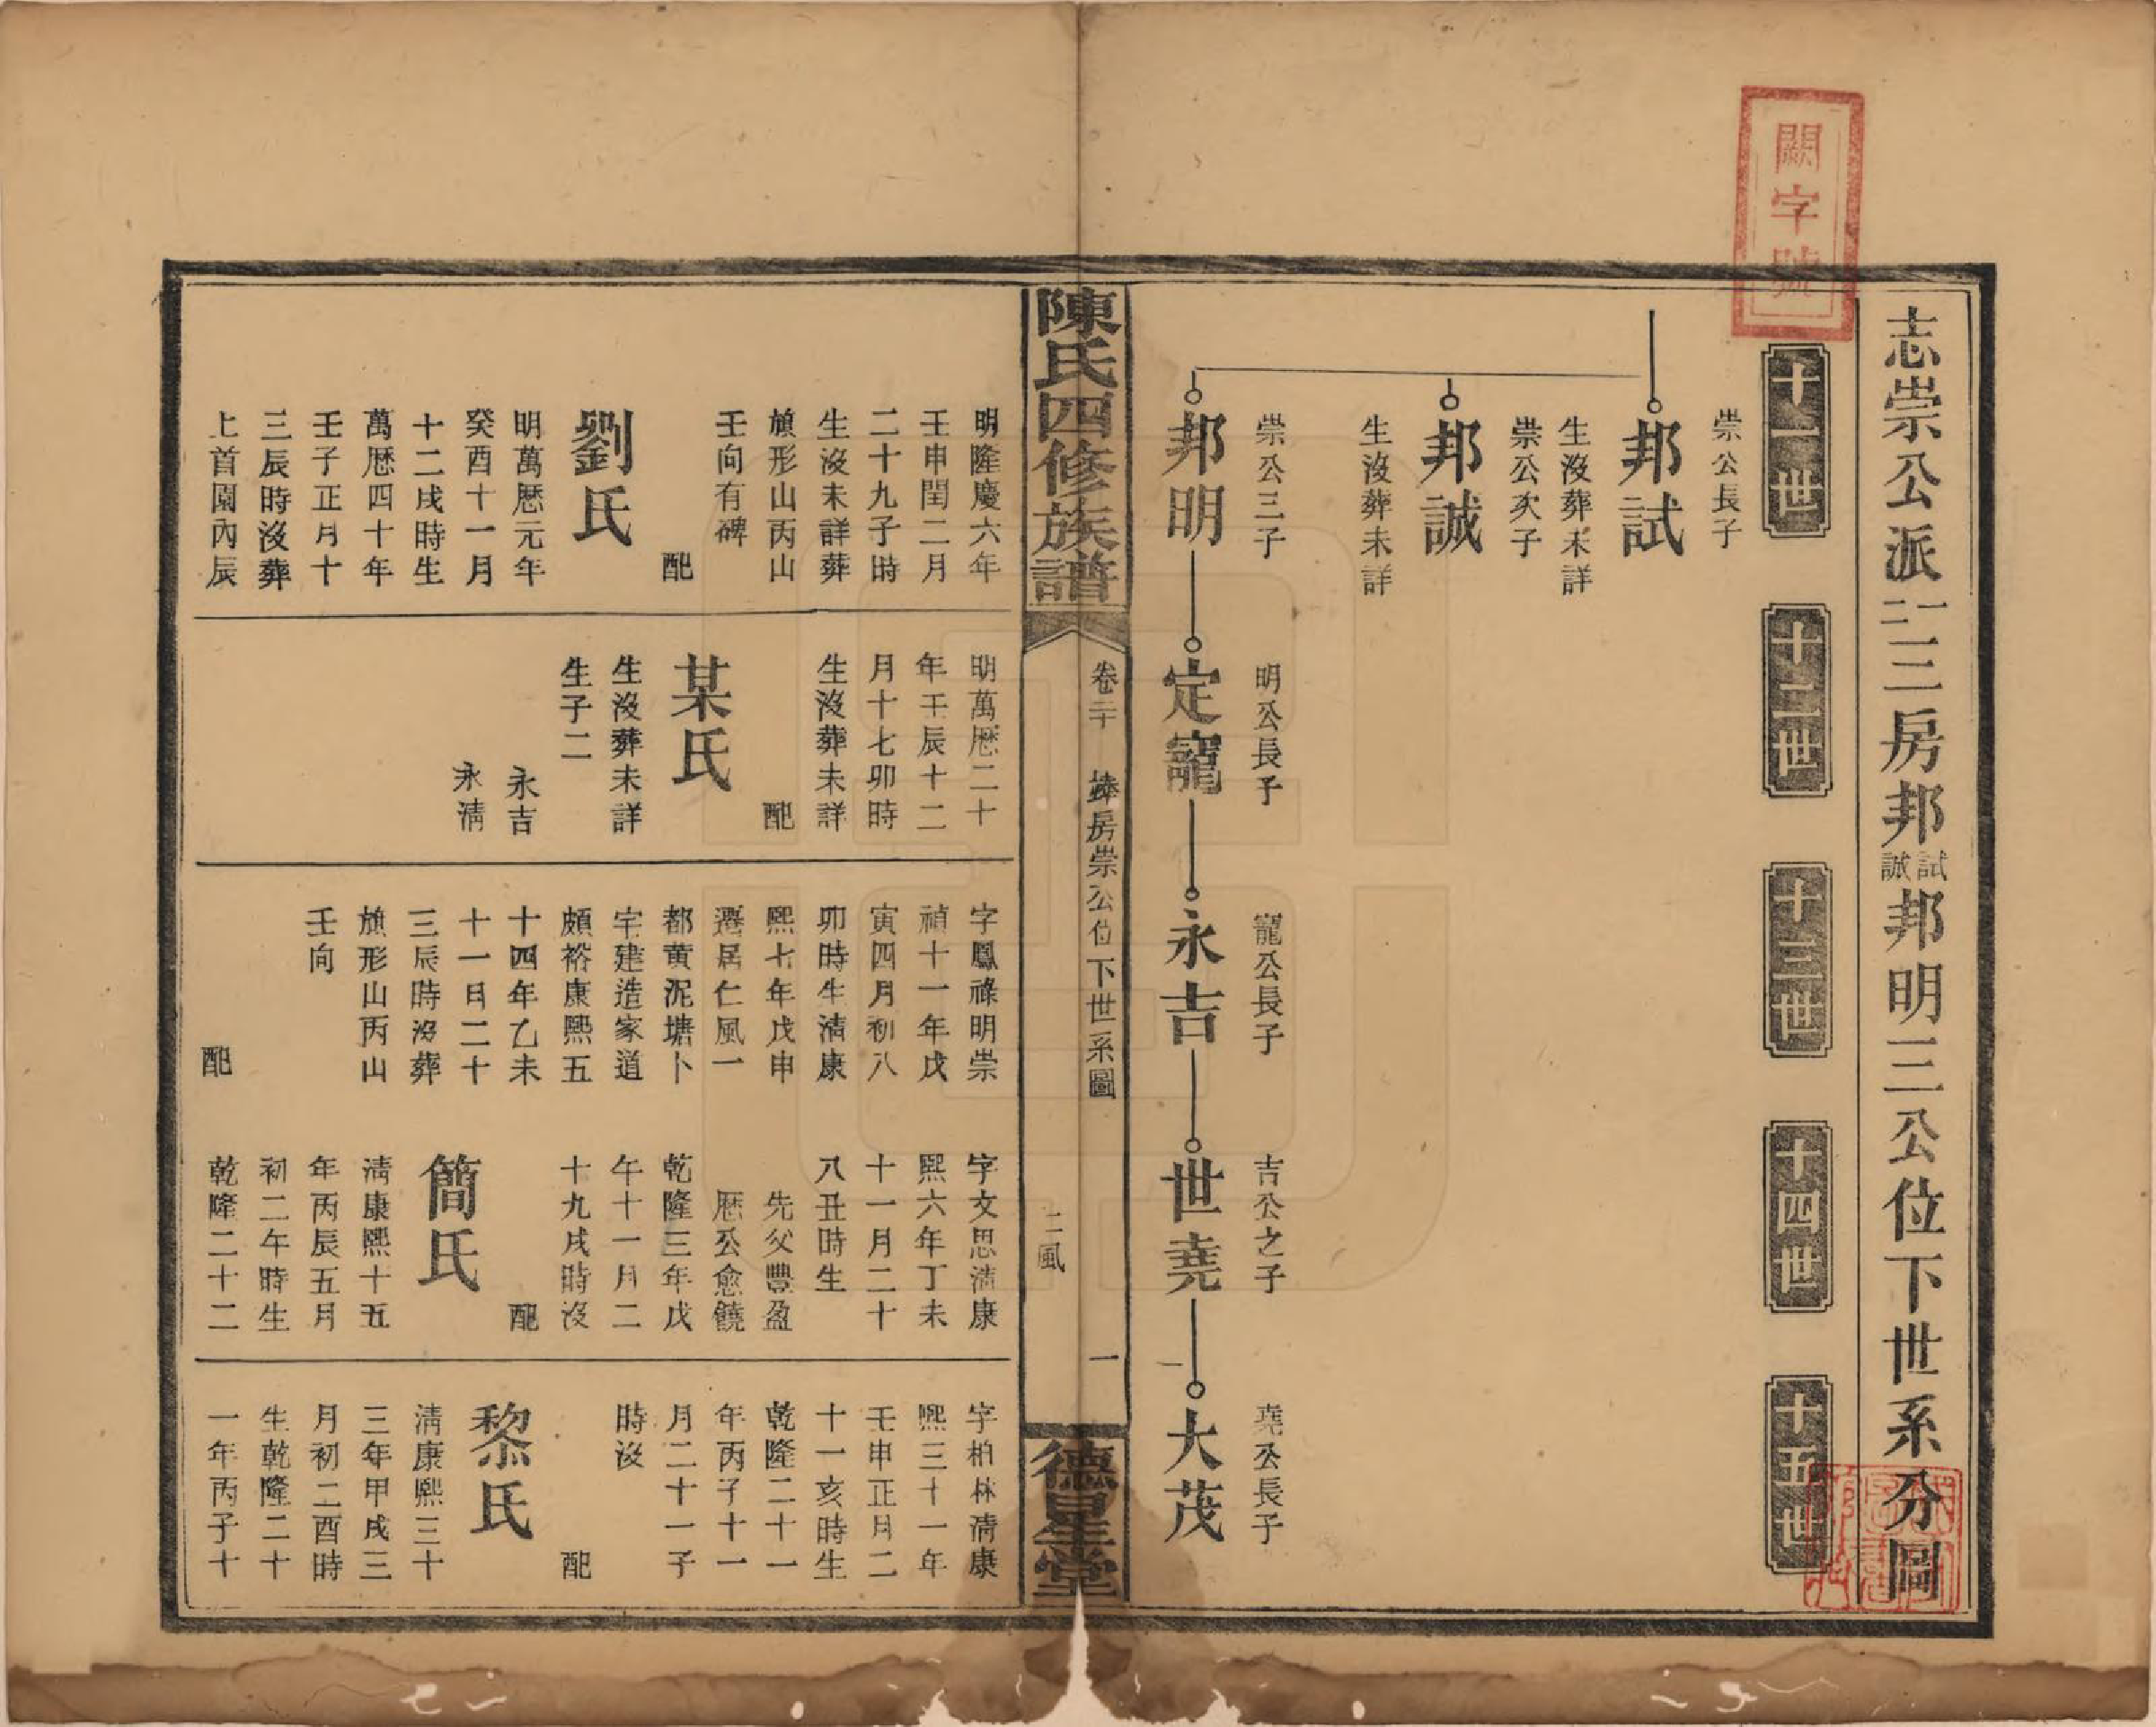 闕字號
志崇公派一二三房邦試誠邦明三公位下世系分圖
十一世
十二世
十三世
十四世
十五世
崇公長子
邦試
生沒葬未詳
崇公次子
邦誠
生沒葬未詳
崇公三子
邦明
明公長子
定寵
寵公長子
永吉
吉公之子
世堯
堯公長子
大茂
陳氏四修族譜
卷二十
房崇公位下世系圖
二風
一
德星堂
明隆慶六年
壬申閏二月
二十九子時
生沒未詳葬
旗形山丙山
壬向有碑
配
劉氏
明萬歷元年
癸酉十一月
十二戌時生
萬歷四十年
壬子正月十
三辰時沒葬
上首園內辰
明萬歷二十
年壬辰十二
月十七卯時
生沒葬未詳
配
某氏
生沒葬未詳
生子二
永吉
永清
字鳳祿明崇
禎十一年戊
寅四月初八
卯時生清康
熙七年戊申
遷居仁風一
都黄泥塘卜
宅建造家道
頗裕康熙五
十四年乙未
十一日二十
三辰時沒葬
旗形山丙山
壬向
配
字文思清康
熙六年丁未
十一月二十
八丑時生
先父豐盈
歷公愈饒
乾隆三年戊
午十一月二
十九戌時沒
配
簡氏
清康熙十五
年丙辰五月
初二午時生
乾隆二十二
字柏林清康
熙三十一年
壬申正月二
十一亥時生
乾隆二十一
年丙子十一
月二十一子
時沒
配
黎氏
清康熙三十
三年甲戌三
月初二酉時
生乾隆二十
一年丙子十